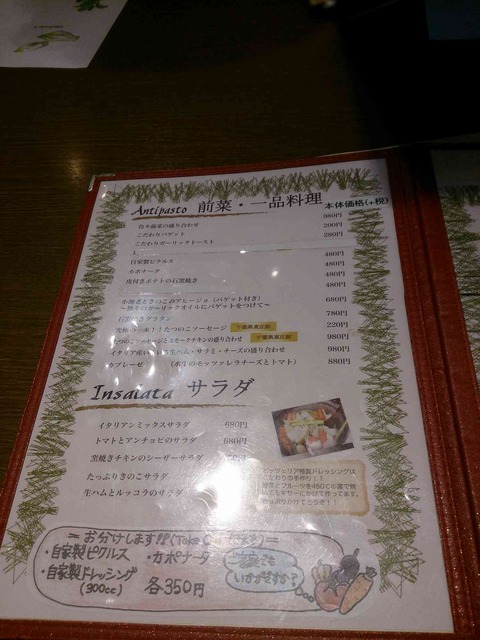 Antipasto 前菜・一品料理 本体価格(+税)
色々前菜の盛り合わせ 980円
こだわりバゲット 200円
こだわりガーリックトースト 280円
480円
自家製ピクルス 480円
カポナータ 480円
皮付きポテトの石窯焼き 480円
小海老ときのこのアヒージョ (バゲット付き) 680円
～熱々のガーリックオイルにバゲットをつけて～
石窯焼きグラタン 780円
究極の一本！たつのこソーセージ 千葉県東庄町 220円
たつのこソーセージとスモークチキンの盛り合わせ 千葉県東庄町 980円
イタリア産 生ハム・サラミ・チーズの盛り合わせ 980円
カプレーゼ (水牛のモッツァレラチーズとトマト) 880円
Insalata サラダ
イタリアンミックスサラダ 680円
トマトとアンチョビのサラダ 680円
窯焼きチキンのシーザーサラダ
たっぷりきのこサラダ
生ハムとルッコラのサラダ
ピッツェリア特製ドレッシングは
こだわりの手作り！！
野菜とフルーツを450℃の窯で焼
いてミキサーにかけて作ってます。
たっぷりかけてどうぞ！！
お分けします!! (Take Out できます)
・自家製ピクルス ・カポナータ
・自家製ドレッシング 各350円
(300cc)
ご家庭でも
いかがですか？